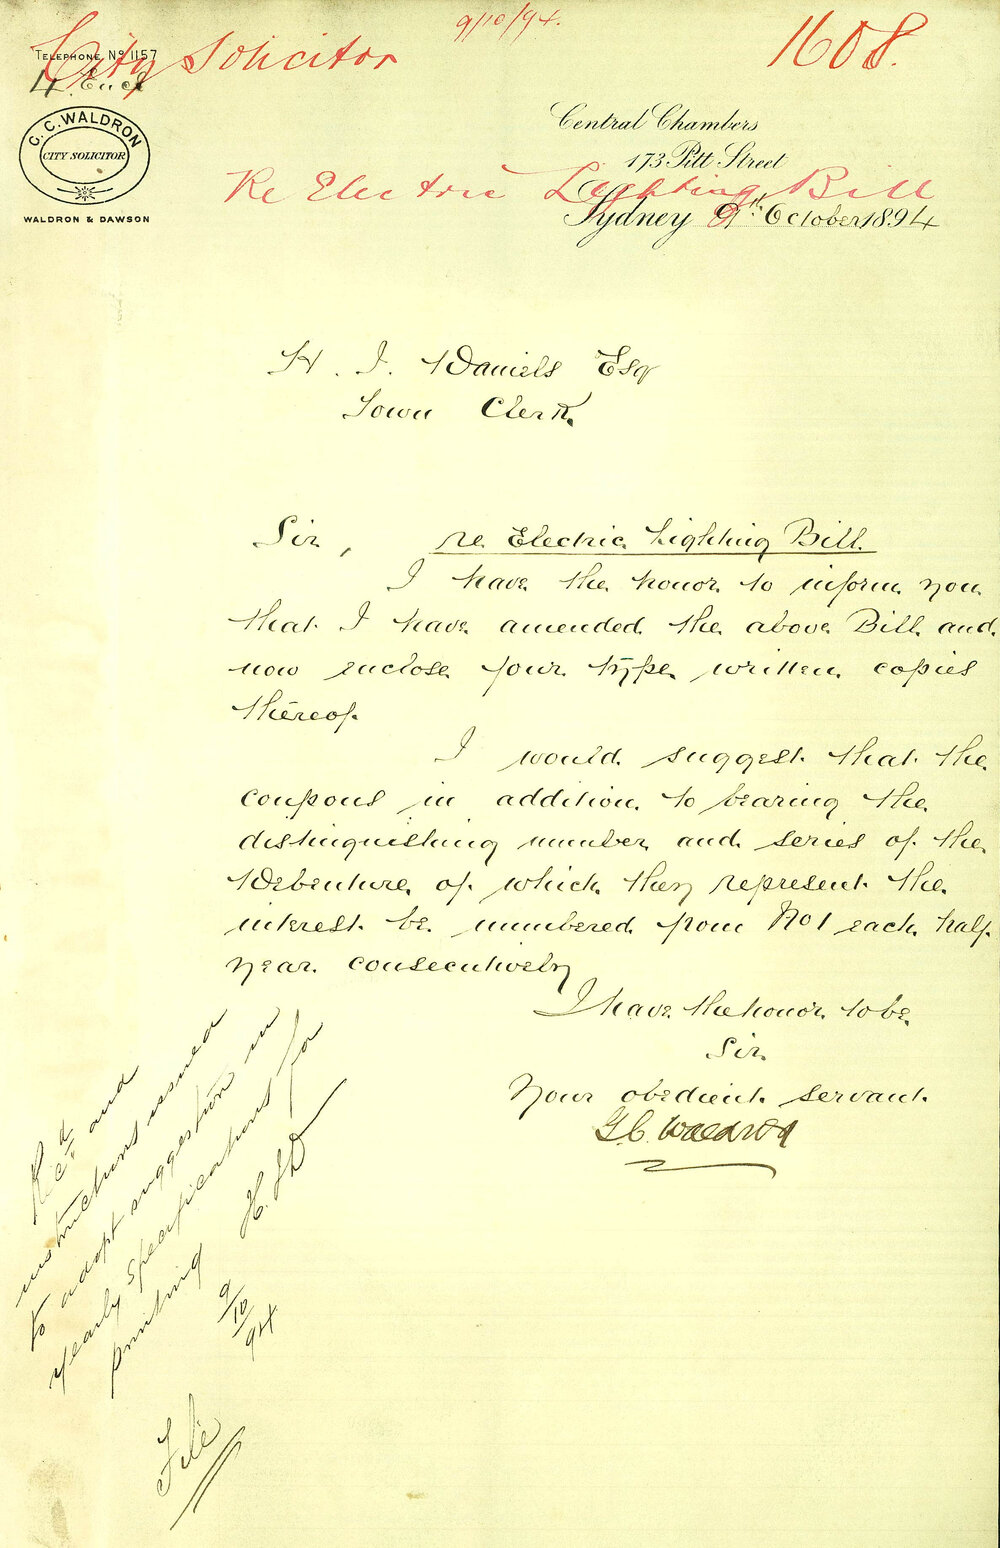 9/10/94.
City Solicitor
1608.
TELEPHONE Nº 1157
4 Encl
G. C. WALDRON
CITY SOLICITOR
WALDRON & DAWSON
Central Chambers
173 Pitt Street
Re Electric Lighting Bill
Sydney 9th October 1894
H. J. Daniels Esq
Town Clerk.
Sir, re Electric Lighting Bill
I have the honor to inform you
that I have amended the above Bill and
now enclose four type written copies
thereof.
I would suggest that the
coupons in addition to bearing the
distinguishing number and series of the
Debenture of which they represent the
interest be numbered from No 1 each half
year consecutively
I have the honor to be
Sir
Your obedient servant
G. C. Waldron
Recd and
instructions issued
to adopt suggestion in
yearly specifications for
printing
H. J. D
9/10/94
File